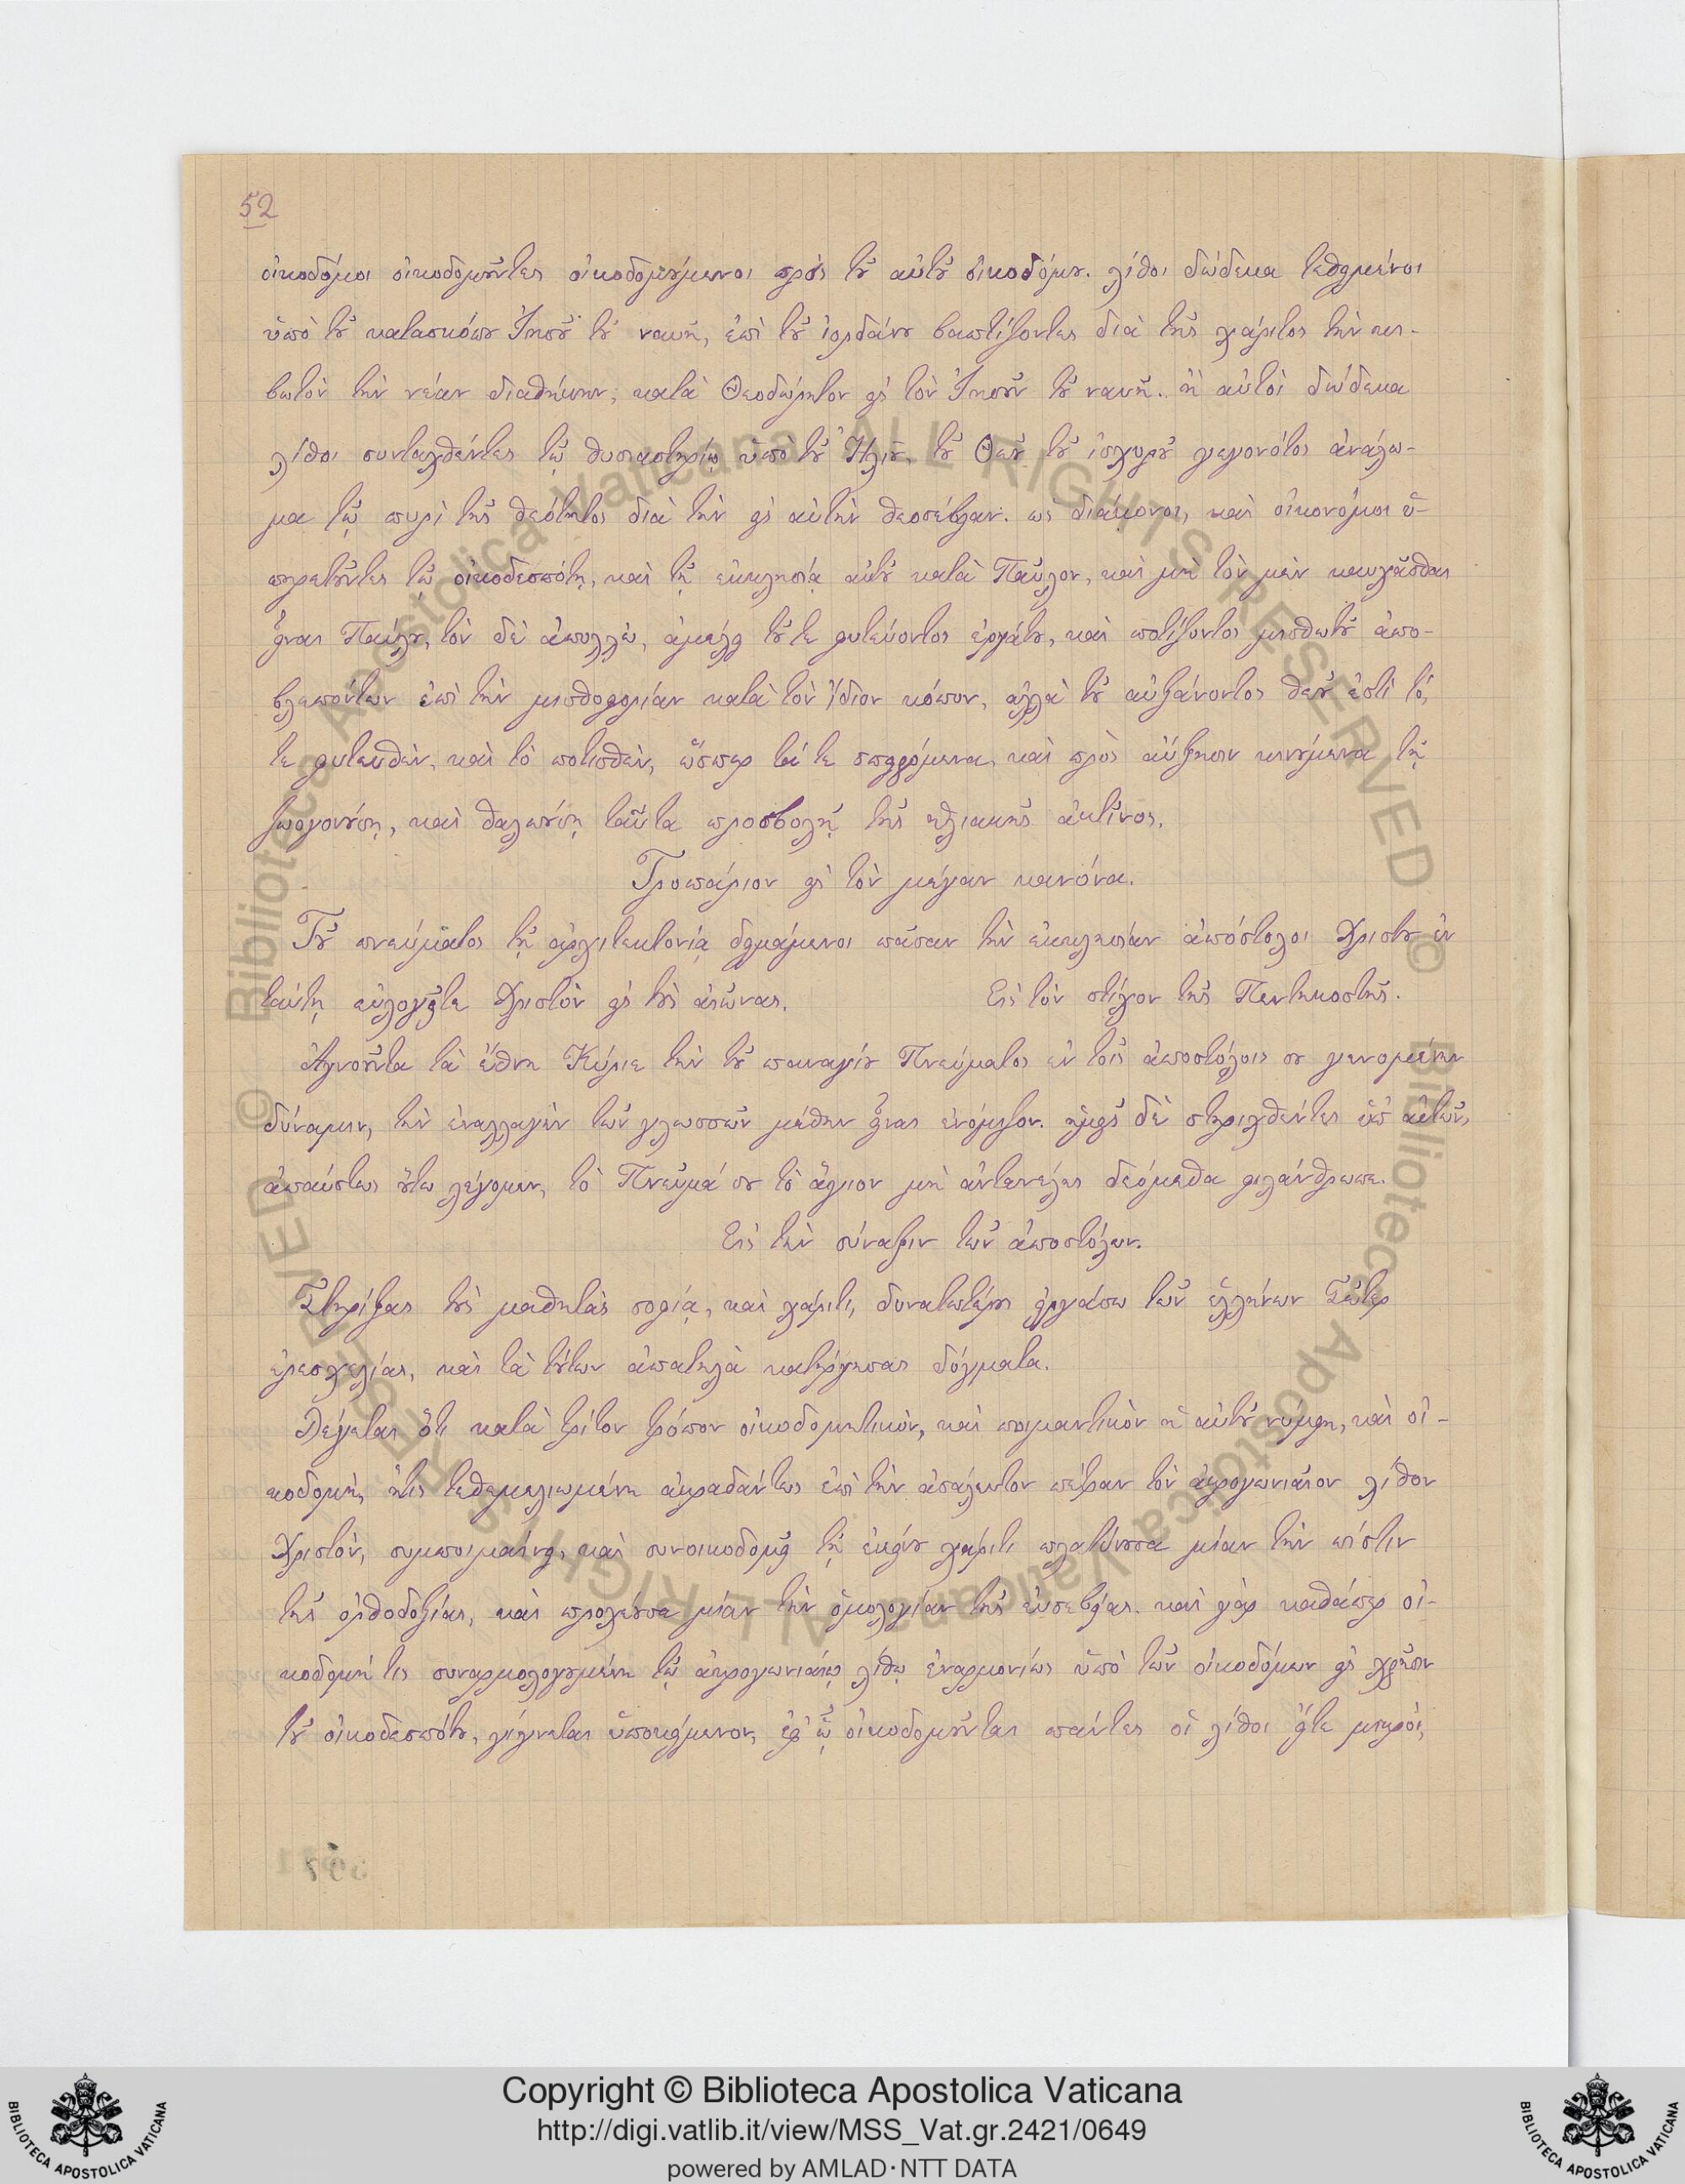 52
οἰκοδόμοι οἰκοδομοῦντες οἰκοδομούμενοι πρὸς τοῦ αὐτοῦ οἰκοδόμου. λίθοι δώδεκα τεθειμένοι
ὑπὸ τοῦ κατασκόπου Ἰησοῦ τοῦ ναυῆ, ἐπὶ τοῦ ἰορδάνου βαπτίζοντες διὰ τῆς χάριτος τὴν κι-
βωτὸν τὴν νέαν διαθήκην, κατὰ Θεοδώρητον εἰς τὸν Ἰησοῦν τοῦ ναυῆ. ἢ αὐτοὶ δώδεκα
λίθοι συνταχθέντες τῷ θυσιαστηρίῳ ὑπὸ τοῦ Ἠλιοῦ, τοῦ Θεοῦ τοῦ ἰσχυροῦ γεγονότος ἀνάλω-
μα τῷ πυρὶ τῆς θεότητος διὰ τὴν εἰς αὐτὴν θεοσέβειαν. ὡς διάκονοι, καὶ οἰκονόμοι ὑ-
πηρετοῦντες τῷ οἰκοδεσπότῃ, καὶ τῇ εκκλησίᾳ αὐτοῦ κατὰ Παῦλον, καὶ μὴ τὸν μὲν καυχᾶσθαι
εἶναι Παύλου, τὸν δὲ ἀπολλὼ, ἀμέλει τοῦ τε φυτεύοντος ἐργάτου, καὶ ποτίζοντος μισθωτοῦ ἀπο-
βλεπόντων ἐπὶ τὴν μισθοφορίαν κατὰ τὸν ἴδιον κόπον, αλλὰ τοῦ αὐξάνοντος θεοῦ ἐστὶ τό,
τε φυτευθὲν, καὶ τὸ ποτισθὲν, ὥσπερ τά τε σπειρόμενα, καὶ πρὸς αὔξησιν κινούμενα τῇ
ζωογονούσῃ, καὶ θαλπούσῃ ταῦτα προσβολῇ τῆς ηλιακῆς ἀκτῖνος.
Τροπάριον εἰς τὸν μέγαν κανόνα.
Τοῦ πνεύματος τῇ αρχιτεκτονίᾳ δειμάμενοι πᾶσαν τὴν ἐκκλησίαν ἀπόστολοι Χριστοῦ ἐν
ταύτῃ εὐλογεῖτε Χριστὸν εἰς τοὺς αιῶνας. Εἰς τὸν στίχον τῆς Πεντηκοστῆς.
Ἀγνοοῦντα τὰ ἔθνη Κύριε τὴν τοῦ παναγίου Πνεύματος ἐν τοῖς ἀποστόλοις σου γενομένην
δύναμιν, τὴν ἐναλλαγὴν τῶν γλωσσῶν μέθην εἶναι ἐνόμιζον. ημεῖς δὲ στηριχθέντες ὑπ' αὐτῶν,
ἀπαύστως οὕτω λέγομεν, τὸ Πνεῦμά σου τὸ ἅγιον μὴ ἀντανέλῃς δεόμεθα φιλάνθρωπε.
Εἰς τὴν σύναξιν τῶν ἀποστόλων.
Στηρίξας τοὺς μαθητὰς σοφίᾳ, καὶ χάριτι, δυνατωτέρους εἰργάσω τῶν ἑλλήνων Σῶτερ
ἐρεσχελίας, καὶ τὰ τούτων ἀπατηλὰ κατήργησας δόγματα.
Λέγεται ὅτι κατὰ τρίτον τρόπον οἰκοδομητικὸν, καὶ ποιμαντικὸν ἡ αὐτοῦ νύμφη, καὶ οἰ-
κοδομὴ, ἥτις τεθεμελιωμένη ἀκραδάντως ἐπὶ τὴν ἀσάλευτον πέτραν τὸν ἀκρογωνιαῖον λίθον
Χριστὸν, συμποιμαίνει, καὶ συνοικοδομεῖ τῇ ἐκείνου χάριτι πλατύνουσα μίαν τὴν πίστιν
τῆς ὀρθοδοξίας, καὶ προλέγουσα μίαν τὴν ὁμολογίαν τῆς εὐσεβείας. καὶ γὰρ καθάπερ οἰ-
κοδομή τις συναρμολογουμένη τῷ ἀκρογωνιαίῳ λίθῳ ἐναρμονίως ὑπὸ τῶν οἰκοδόμων εἰς χρῆσιν
τοῦ οἰκοδεσπότου, γίγνεται ὑποκείμενον, ἐφ' ᾧ οἰκοδομοῦνται πάντες οἱ λίθοι εἴτε μικροί,
Copyright © Biblioteca Apostolica Vaticana
http://digi.vatlib.it/view/MSS_Vat.gr.2421/0649
powered by AMLAD·NTT DATA